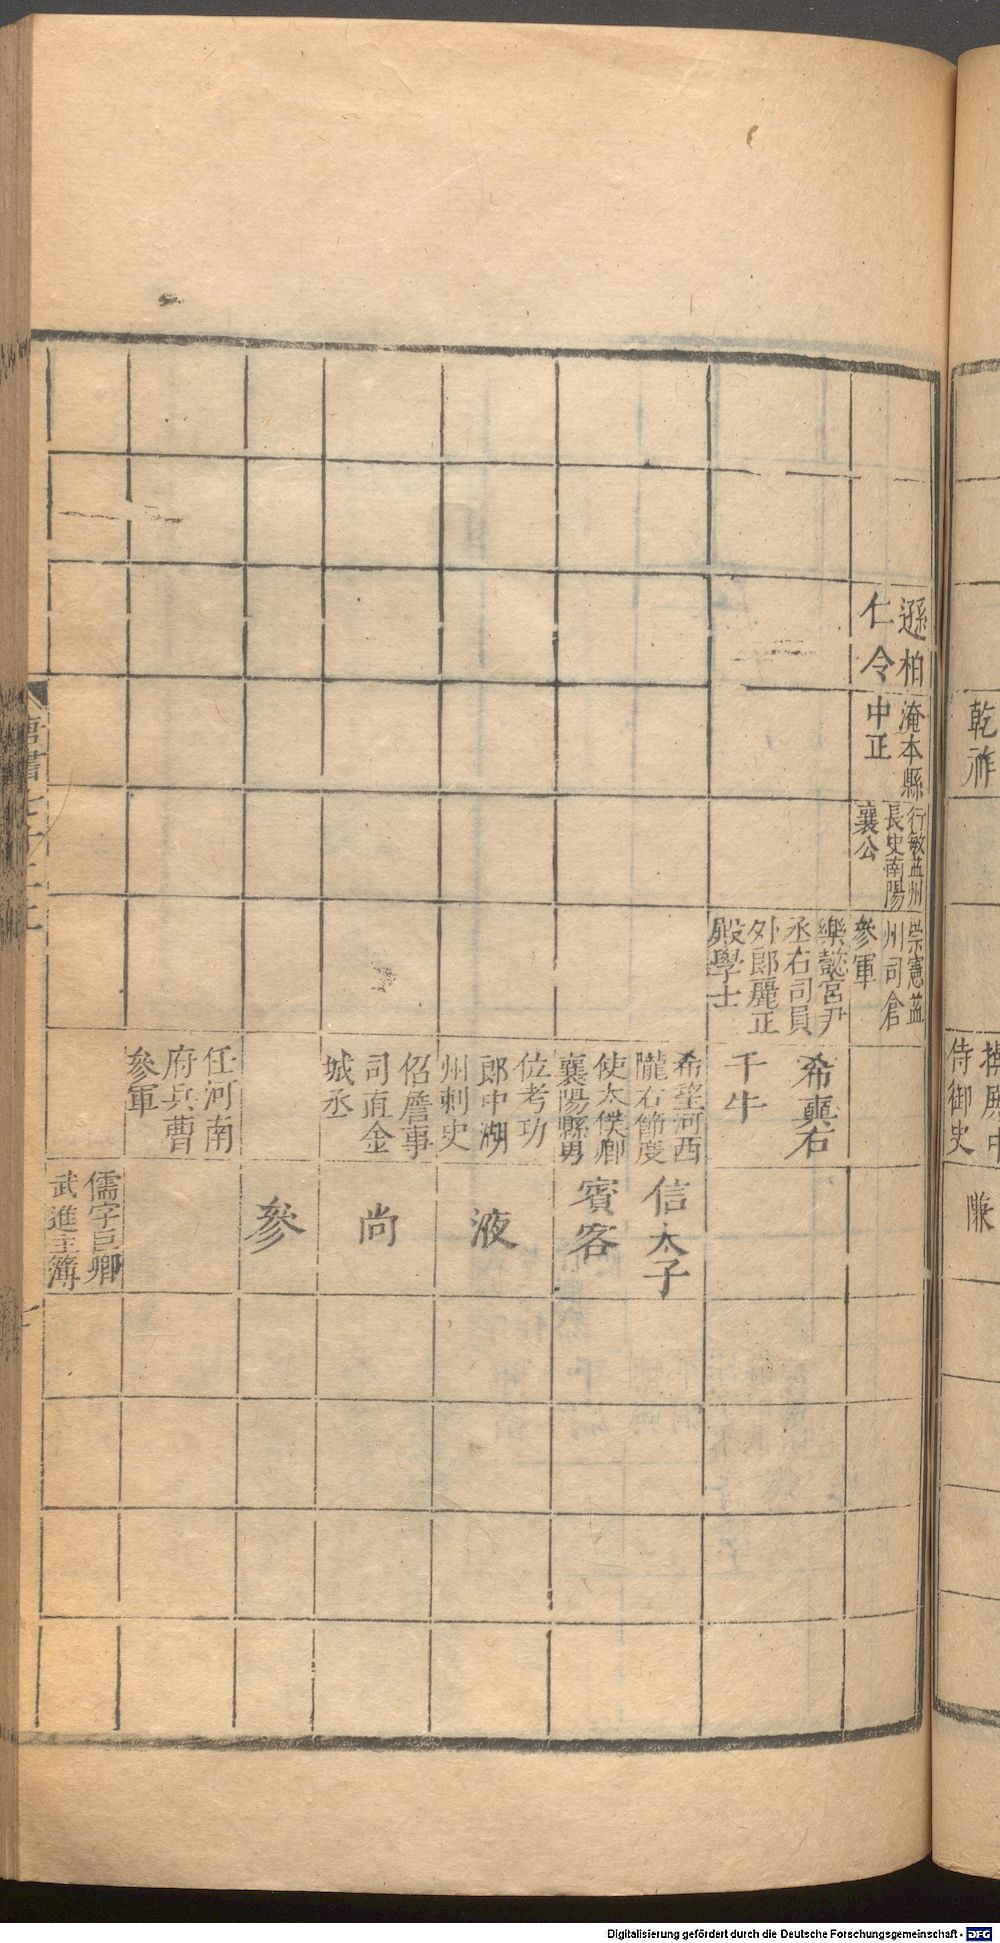 乾祚
侍御史
遜柏
仁令
淹本縣
中正
行敏益州
長史南陽
襄公
崇憲益
州司倉
參軍
崇懿宮尹
丞右司員
外郎麗正
殿學士
希奭右
千牛
希望河西
隴右節度
使太僕卿
襄陽縣男
位考功
郎中湖
州刺史
佋詹事
司直金
城丞
任河南
府兵曹
參軍
信太子
賓客
液
尚
參
儒字巨卿
武進主簿
唐書七十二上
Digitalisierung gefördert durch die Deutsche Forschungsgemeinschaft - DFG